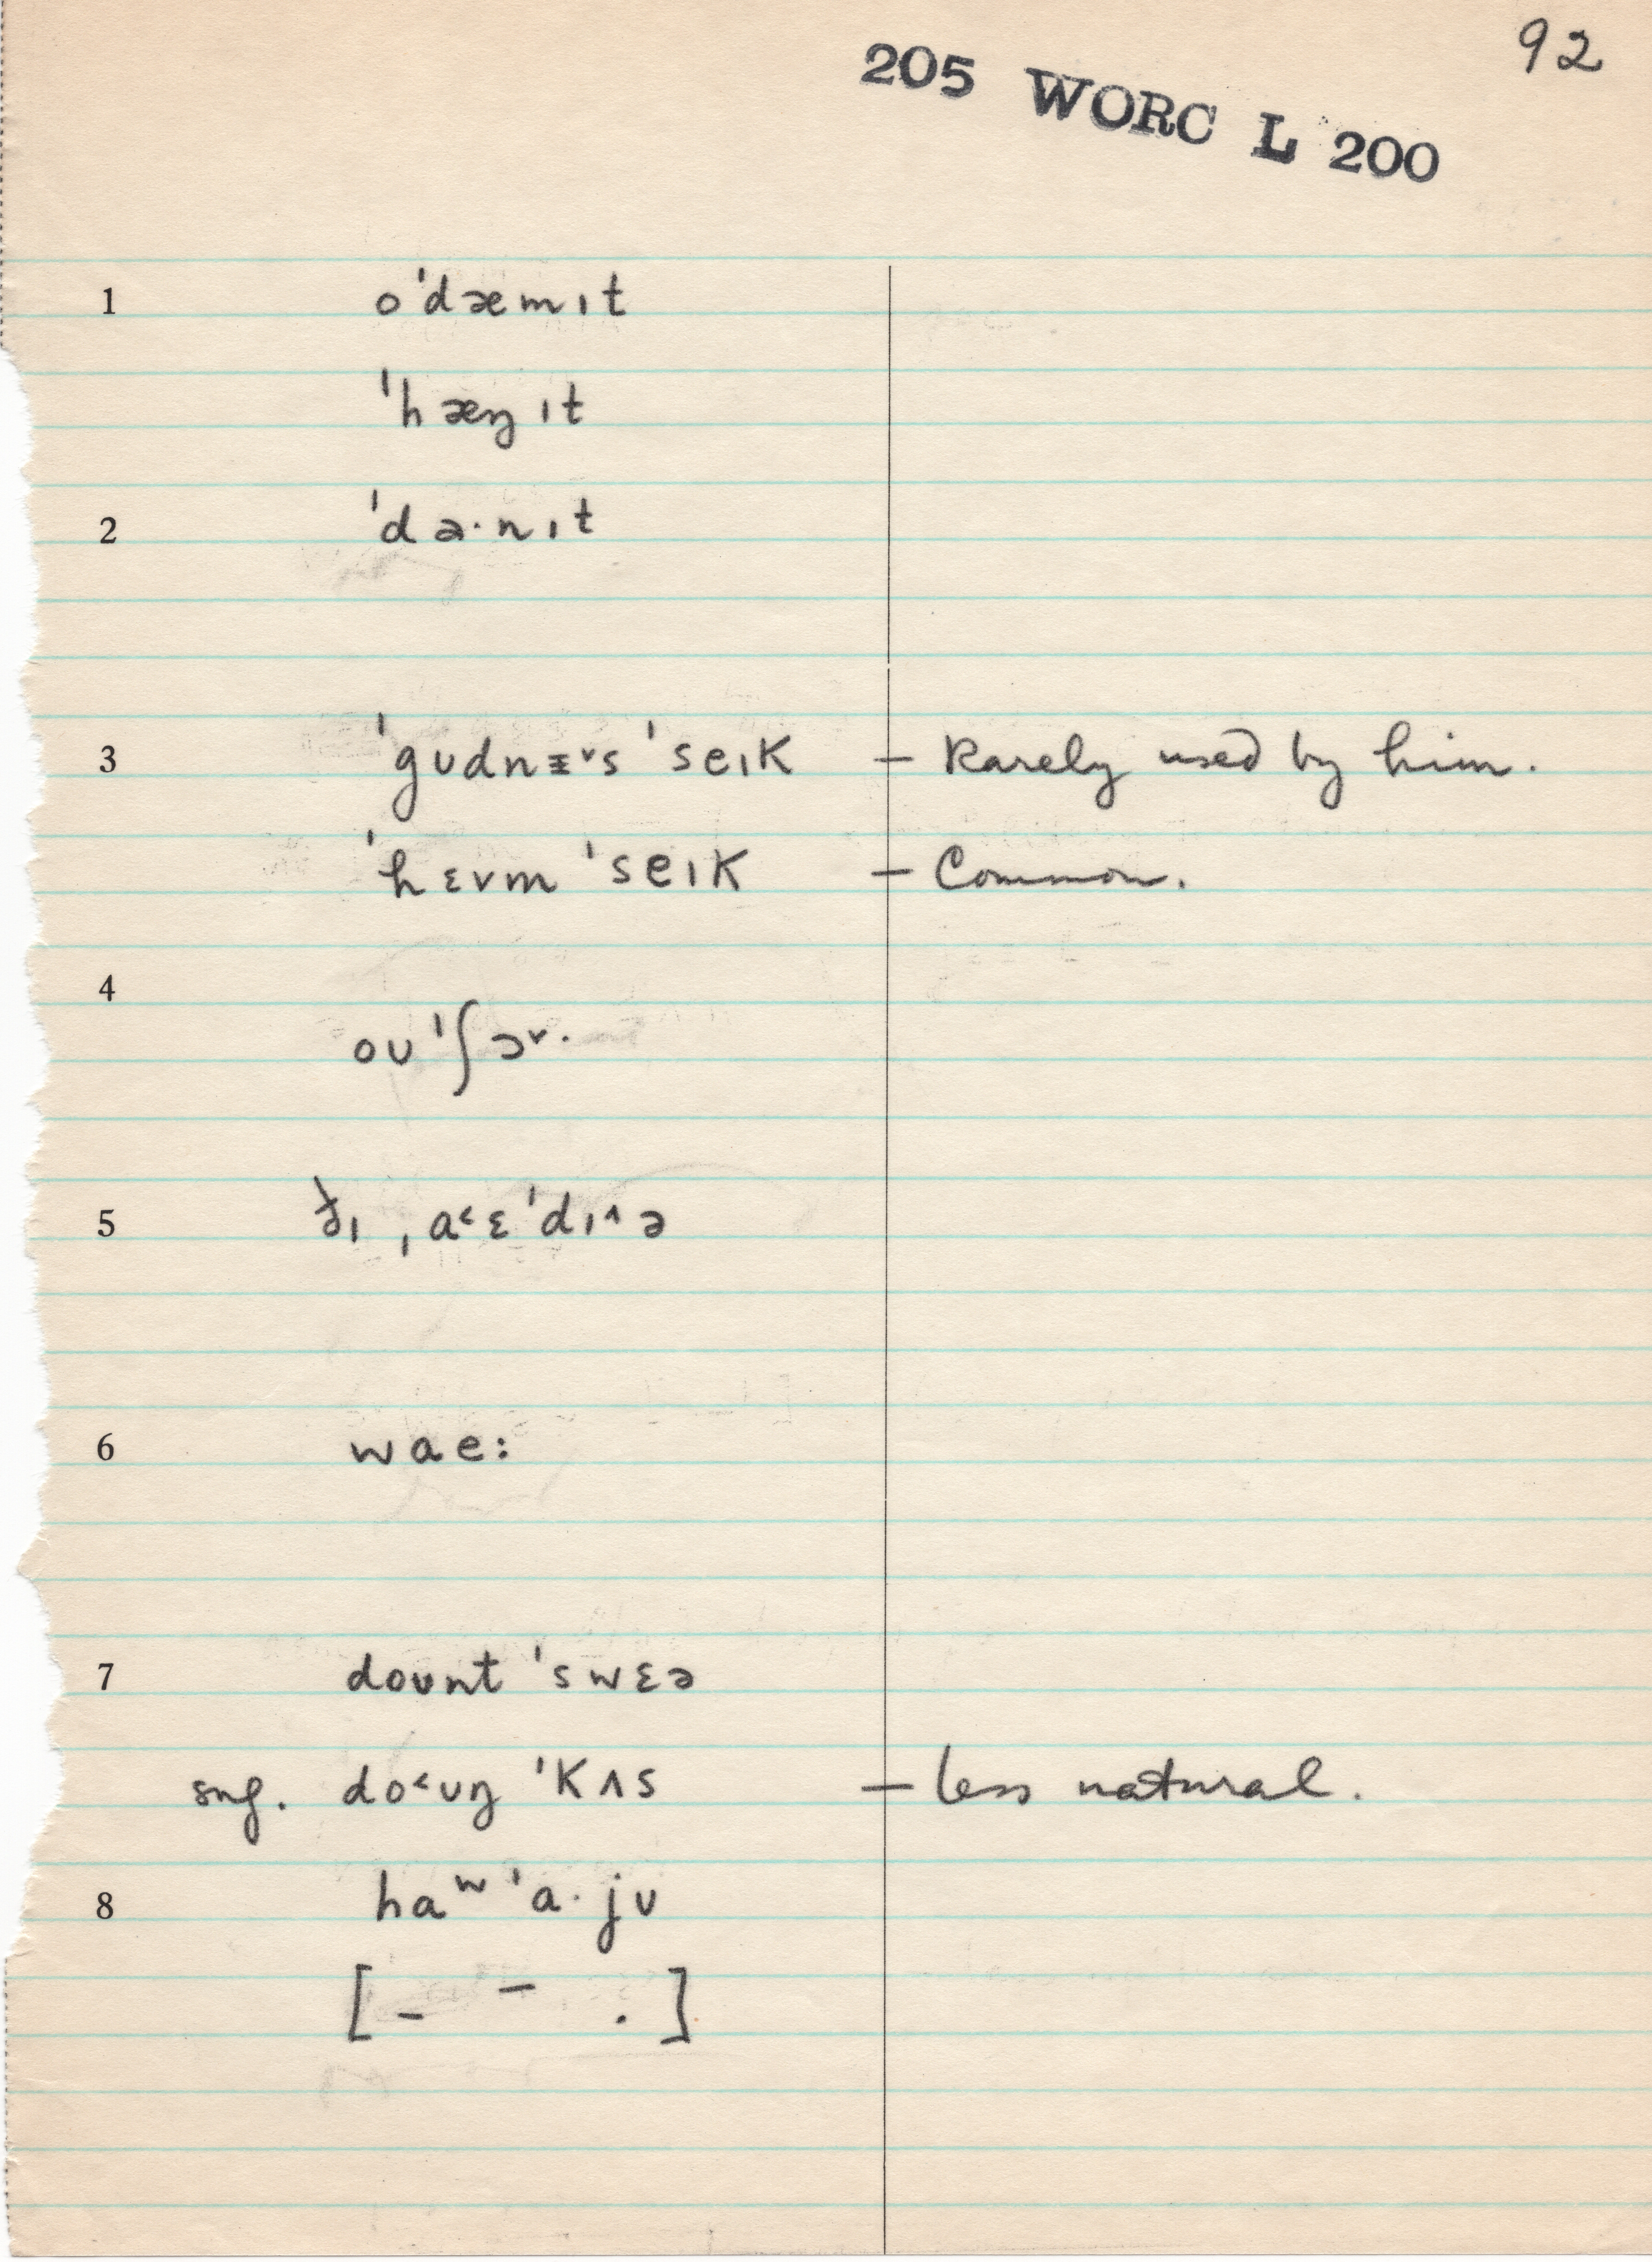 92
205 WORC L 200
1 oˈdæmɪt
ˈhæŋɪt
2 ˈdə·nɪt
3 ˈɡʊdnɪ˅s ˈseɪk – Rarely used by him.
ˈhɛvm ˈseɪk – Common.
4 oʊˈʃɔ˅·
5 ðɪ ˌa˂ɛˈdɪ˄ə
6 wae:
7 doʊnt ˈswɛə
sug. do˂ʊŋ ˈkʌs – less natural.
8 haʷ ˈa·jʊ
[– – .]